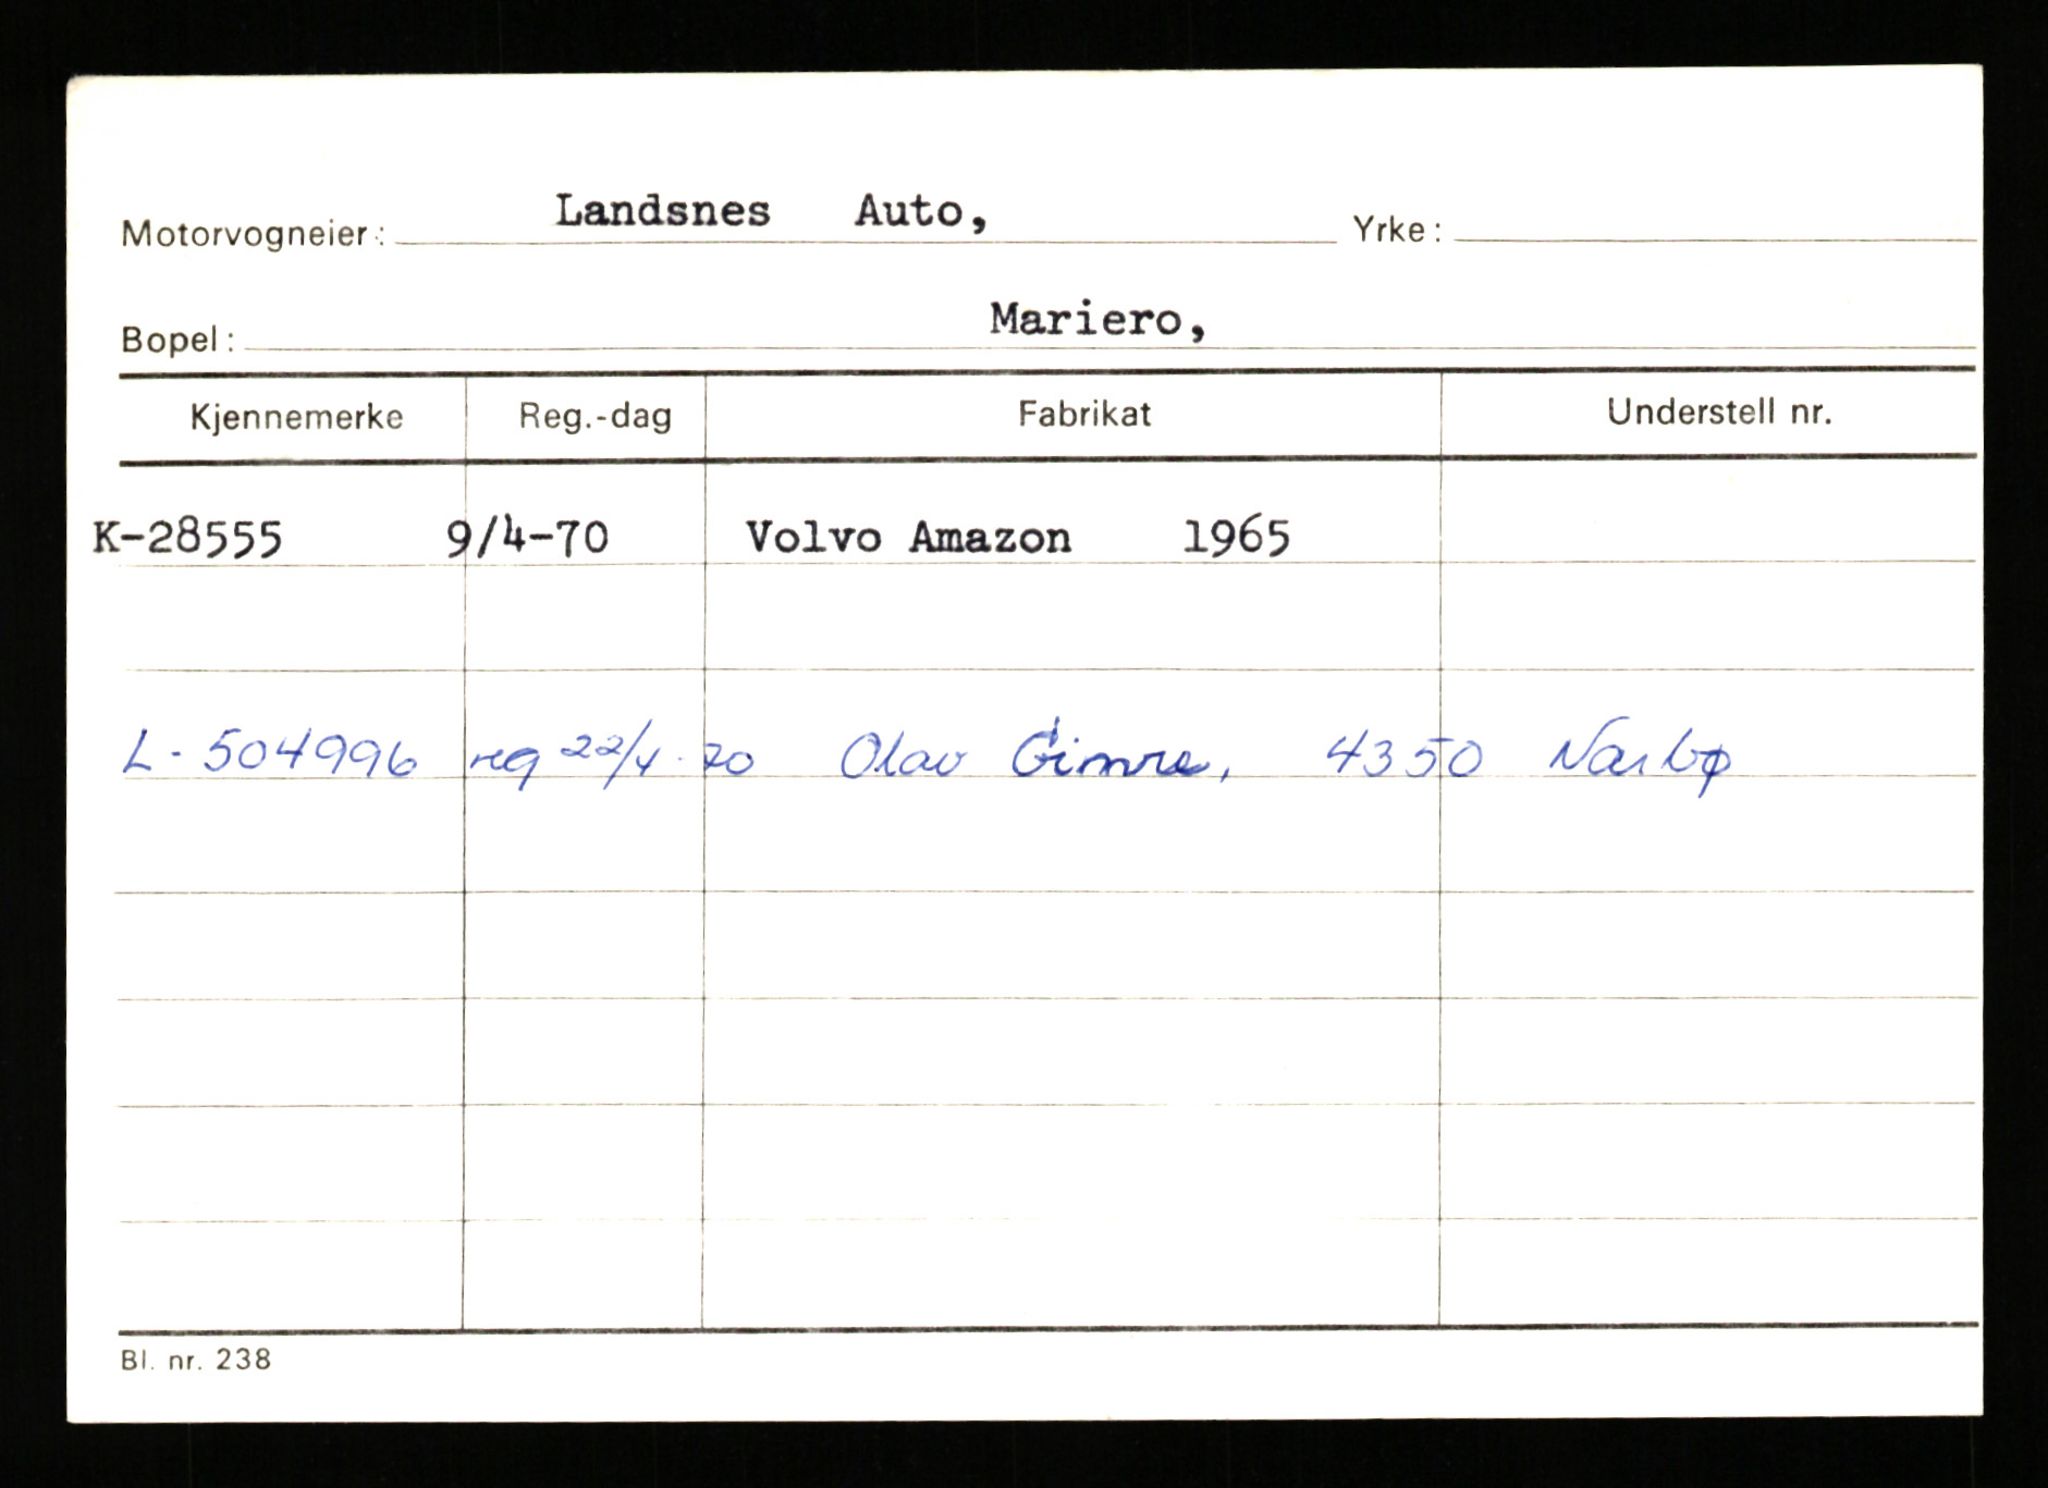 Motorvogneier: Landsnes Auto, Yrke:
Bopel: Mariero,
Kjennemerke Reg.-dag Fabrikat Understell nr.
K-28555 9/4-70 Volvo Amazon 1965
L-504996 reg 22/4-70 Olav Gimre, 4350 Nærbø
Bl. nr. 238